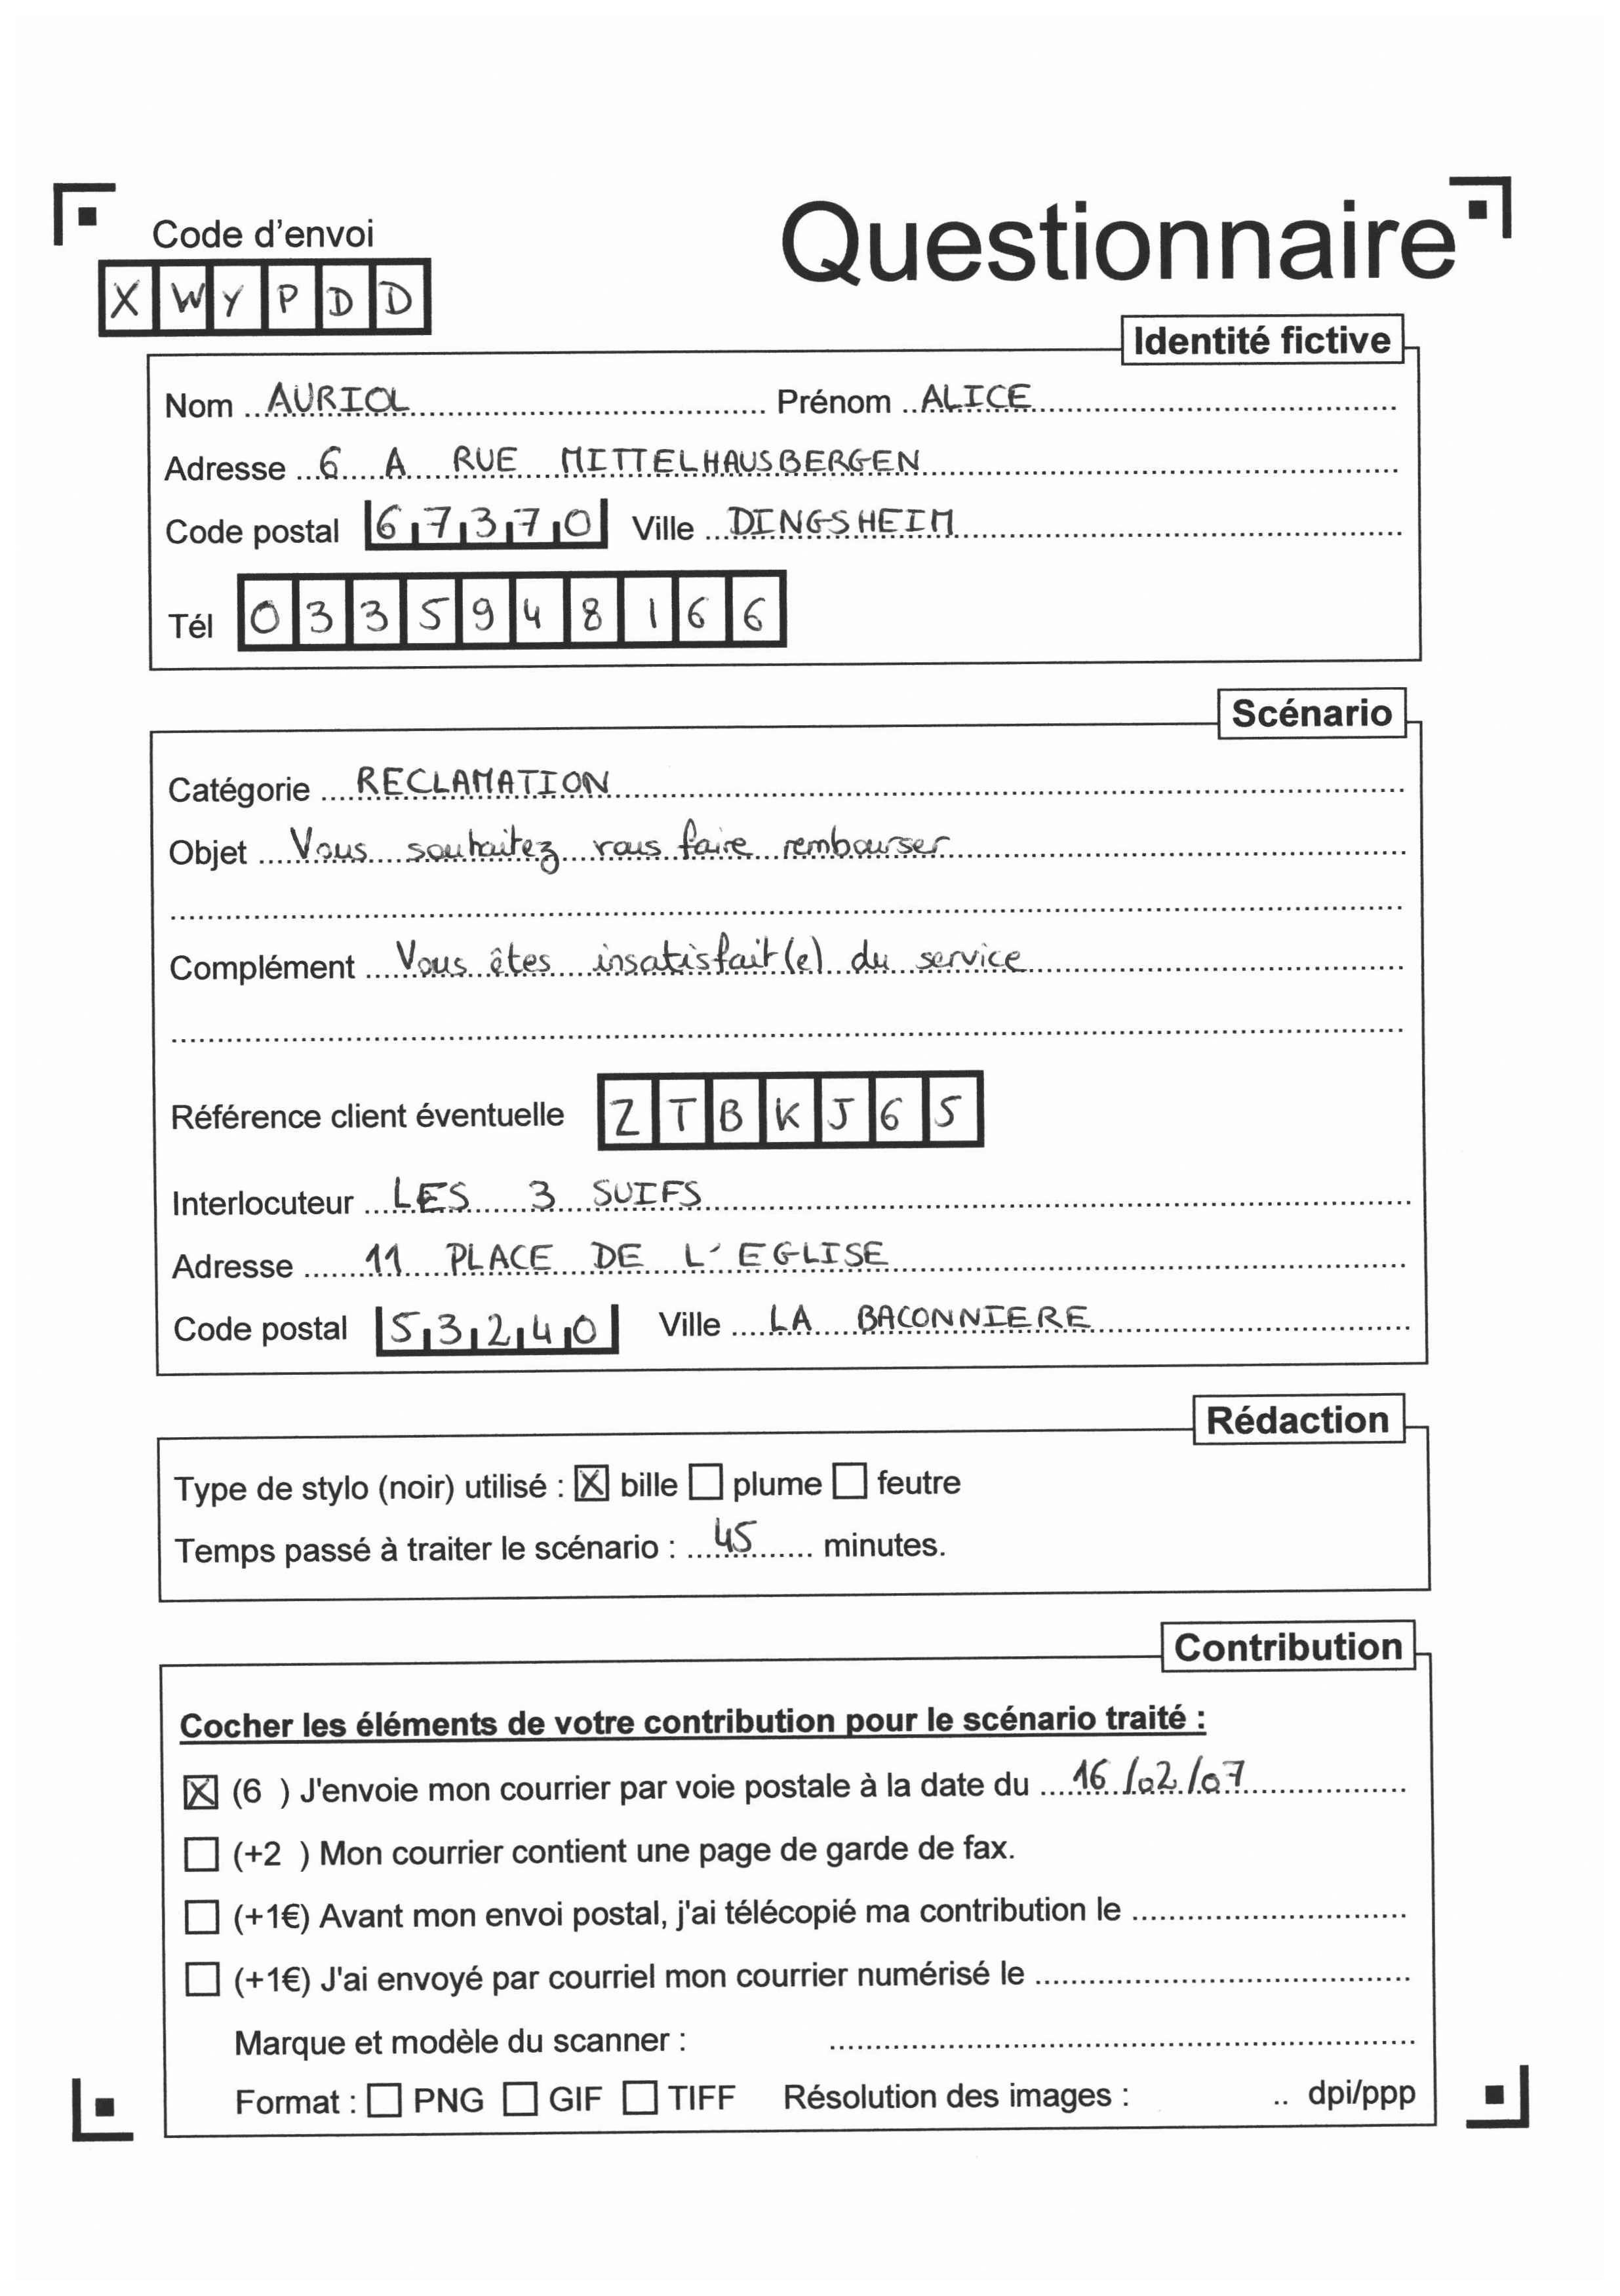 Code d'envoi
Questionnaire
X W Y P D D
Identité fictive
Nom AURIOL Prénom ALICE
Adresse 6 A RUE MITTELHAUSBERGEN
Code postal 67370 Ville DINGSHEIM
Tél 0335948166
Scénario
Catégorie RECLAMATION
Objet Vous souhaitez vous faire rembourser
Complément Vous êtes insatisfait(e) du service
Référence client éventuelle ZTBKJ65
Interlocuteur LES 3 SUIFS
Adresse 11 PLACE DE L'EGLISE
Code postal 53240 Ville LA BACONNIERE
Rédaction
Type de stylo (noir) utilisé : ☒ bille ☐ plume ☐ feutre
Temps passé à traiter le scénario : 45 minutes.
Contribution
Cocher les éléments de votre contribution pour le scénario traité :
☒ (6 ) J'envoie mon courrier par voie postale à la date du 16/02/07
☐ (+2 ) Mon courrier contient une page de garde de fax.
☐ (+1€) Avant mon envoi postal, j'ai télécopié ma contribution le
☐ (+1€) J'ai envoyé par courriel mon courrier numérisé le
Marque et modèle du scanner :
Format : ☐ PNG ☐ GIF ☐ TIFF Résolution des images : .. dpi/ppp